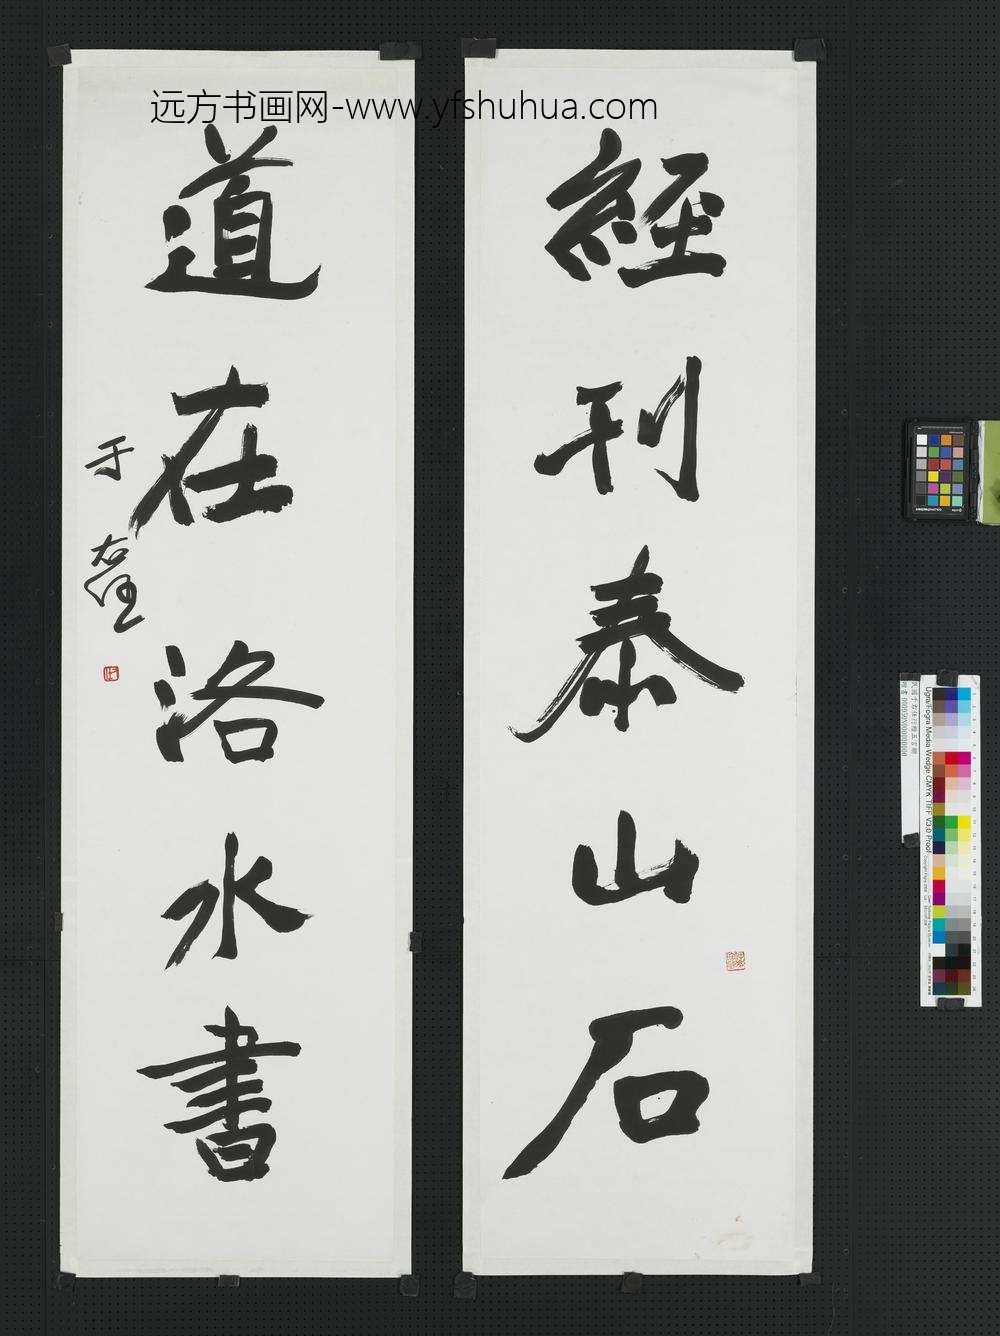 远方书画网-www.yfshuhua.com
經刊泰山石
道在洛水書
于右任
Ugra/Fogra Media Wedge CMYK TIFF V3.0 Proof